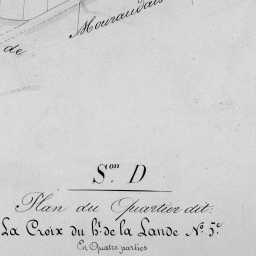 Mouraudais
de
S.on D
Plan du Quartier dit:
La Croix du h.t de la Lande N.o 5.e
En Quatre parties